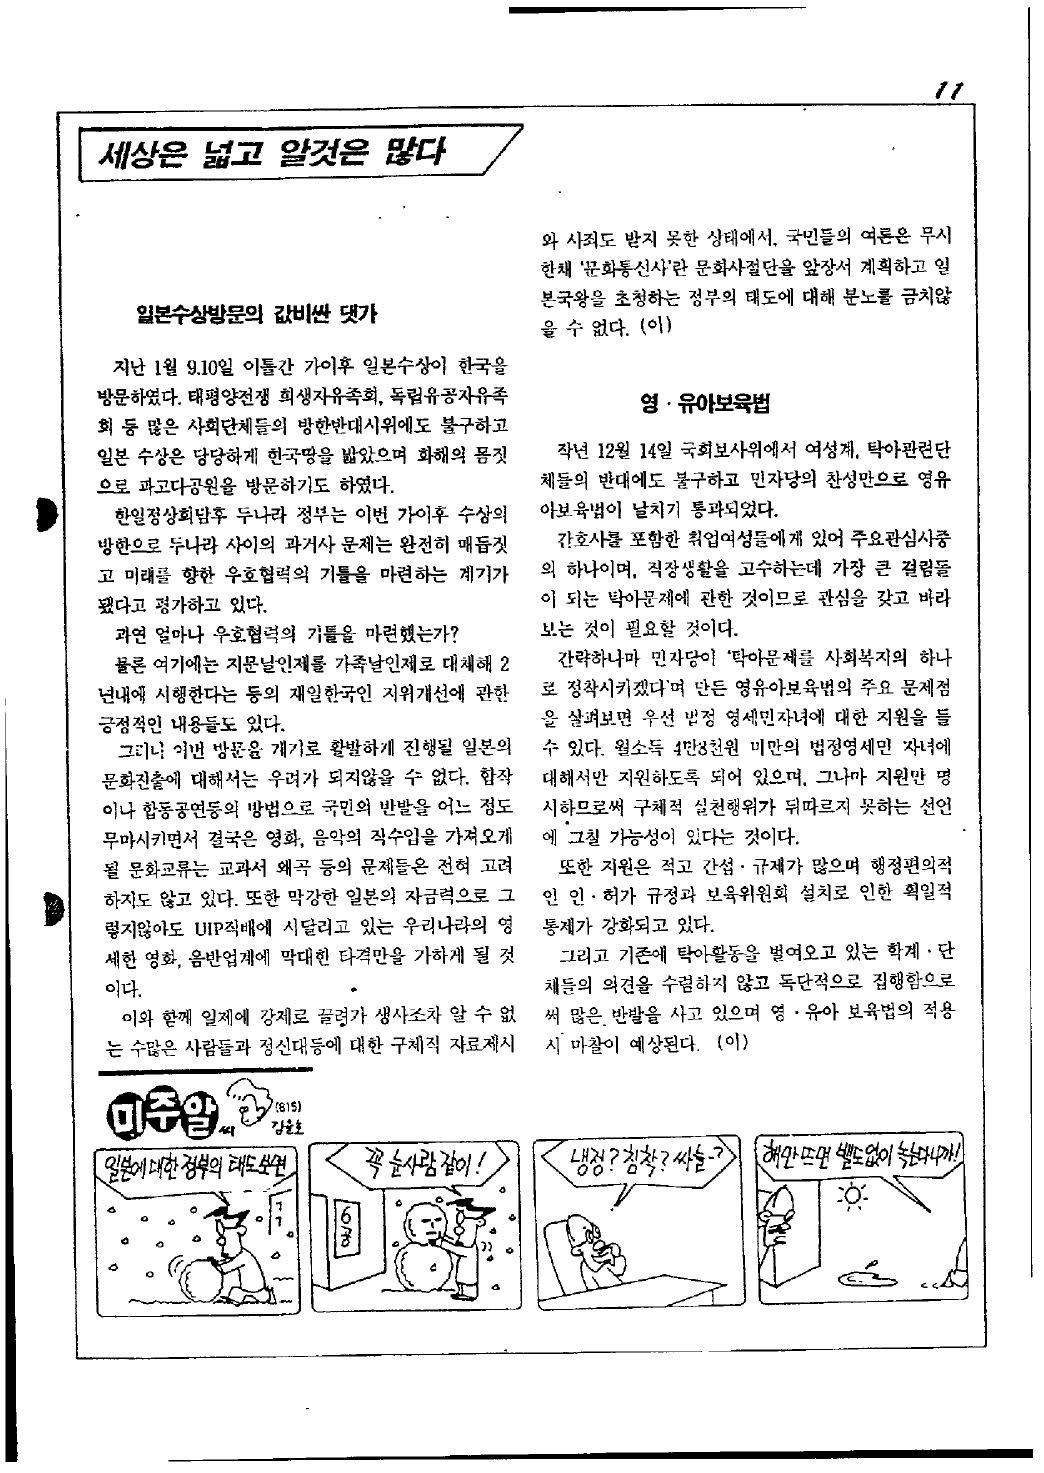 11
세상은 넓고 알것은 많다
일본수상방문의 값비싼 댓가
지난 1월 9.10일 이틀간 가이후 일본수상이 한국을
방문하였다. 태평양전쟁 희생자유족회, 독립유공자유족
회 등 많은 사회단체들의 방한반대시위에도 불구하고
일본 수상은 당당하게 한국땅을 밟았으며 화해의 몸짓
으로 파고다공원을 방문하기도 하였다.
한일정상회담후 두나라 정부는 이번 가이후 수상의
방한으로 두나라 사이의 과거사 문제는 완전히 매듭짓
고 미래를 향한 우호협력의 기틀을 마련하는 계기가
됐다고 평가하고 있다.
과연 얼마나 우호협력의 기틀을 마련했는가?
물론 여기에는 지문날인제를 가족날인제로 대체해 2
년내에 시행한다는 등의 재일한국인 지위개선에 관한
긍정적인 내용들도 있다.
그러나 이번 방문을 계기로 활발하게 진행될 일본의
문화진출에 대해서는 우려가 되지않을 수 없다. 합작
이나 합동공연등의 방법으로 국민의 반발을 어느 정도
무마시키면서 결국은 영화, 음악의 직수입을 가져오게
될 문화교류는 교과서 왜곡 등의 문제들은 전혀 고려
하지도 않고 있다. 또한 막강한 일본의 자금력으로 그
렇지않아도 UIP직배에 시달리고 있는 우리나라의 영
세한 영화, 음반업계에 막대한 타격만을 가하게 될 것
이다.
이와 함께 일제에 강제로 끌려가 생사조차 알 수 없
는 수많은 사람들과 정신대등에 대한 구체적 자료제시
와 사죄도 받지 못한 상태에서, 국민들의 여론은 무시
한채 '문화통신사'란 문화사절단을 앞장서 계획하고 일
본국왕을 초청하는 정부의 태도에 대해 분노를 금치않
을 수 없다. (이)
영·유아보육법
작년 12월 14일 국회보사위에서 여성계, 탁아관련단
체들의 반대에도 불구하고 민자당의 찬성만으로 영유
아보육법이 날치기 통과되었다.
간호사를 포함한 취업여성들에게 있어 주요관심사중
의 하나이며, 직장생활을 고수하는데 가장 큰 걸림돌
이 되는 탁아문제에 관한 것이므로 관심을 갖고 바라
보는 것이 필요할 것이다.
간략하나마 민자당이 '탁아문제를 사회복지의 하나
로 정착시키겠다'며 만든 영유아보육법의 주요 문제점
을 살펴보면 우선 법정 영세민자녀에 대한 지원을 들
수 있다. 월소득 4만8천원 미만의 법정영세민 자녀에
대해서만 지원하도록 되어 있으며, 그나마 지원만 명
시하므로써 구체적 실천행위가 뒤따르지 못하는 선언
에 그칠 가능성이 있다는 것이다.
또한 지원은 적고 간섭·규제가 많으며 행정편의적
인 인·허가 규정과 보육위원회 설치로 인한 획일적
통제가 강화되고 있다.
그리고 기존에 탁아활동을 벌여오고 있는 학계·단
체들의 의견을 수렴하지 않고 독단적으로 집행함으로
써 많은 반발을 사고 있으며 영·유아 보육법의 적용
시 마찰이 예상된다. (이)
미주알 씨
(815)
김을호
일본에 대한 정부의 태도 보면
꼭 눈사람 같이!
6공
냉정? 침착? 싸늘-?
해만 뜨면 밸도 없이 녹는다니까!